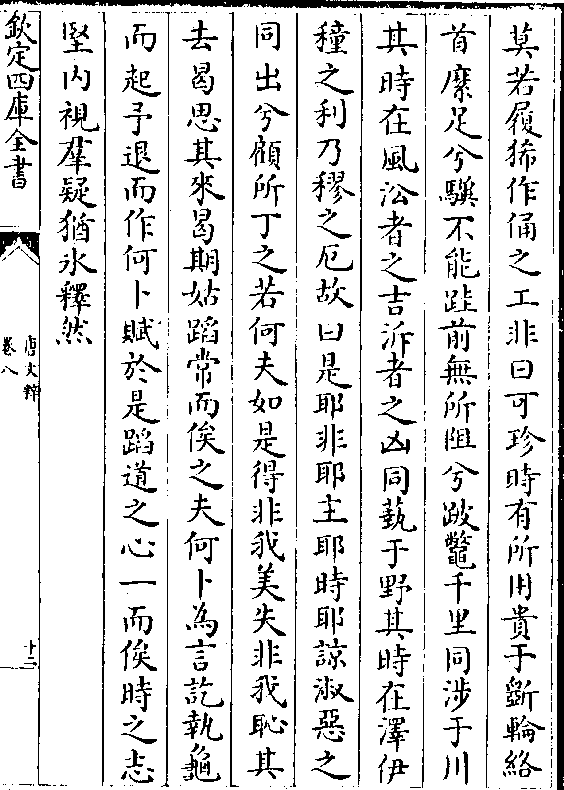 莫若履狶作俑之工非曰可珍時有所用貴于斲輪絡
首縻足兮驥不能踄前無所阻兮跛鼈千里同涉于川
其時在風沿者之吉泝者之凶同蓺于野其時在澤伊
穜之利乃穋之厄故曰是耶非耶主耶時耶諒淑惡之
同出兮顧所丁之若何夫如是得非我美失非我恥其
去曷思其來曷期姑蹈常而俟之夫何卜為言訖執龜
而起予退而作何卜賦於是蹈道之心一而俟時之志
堅内視羣疑猶氷釋然
欽定四庫全書
唐文粹
卷八
十二